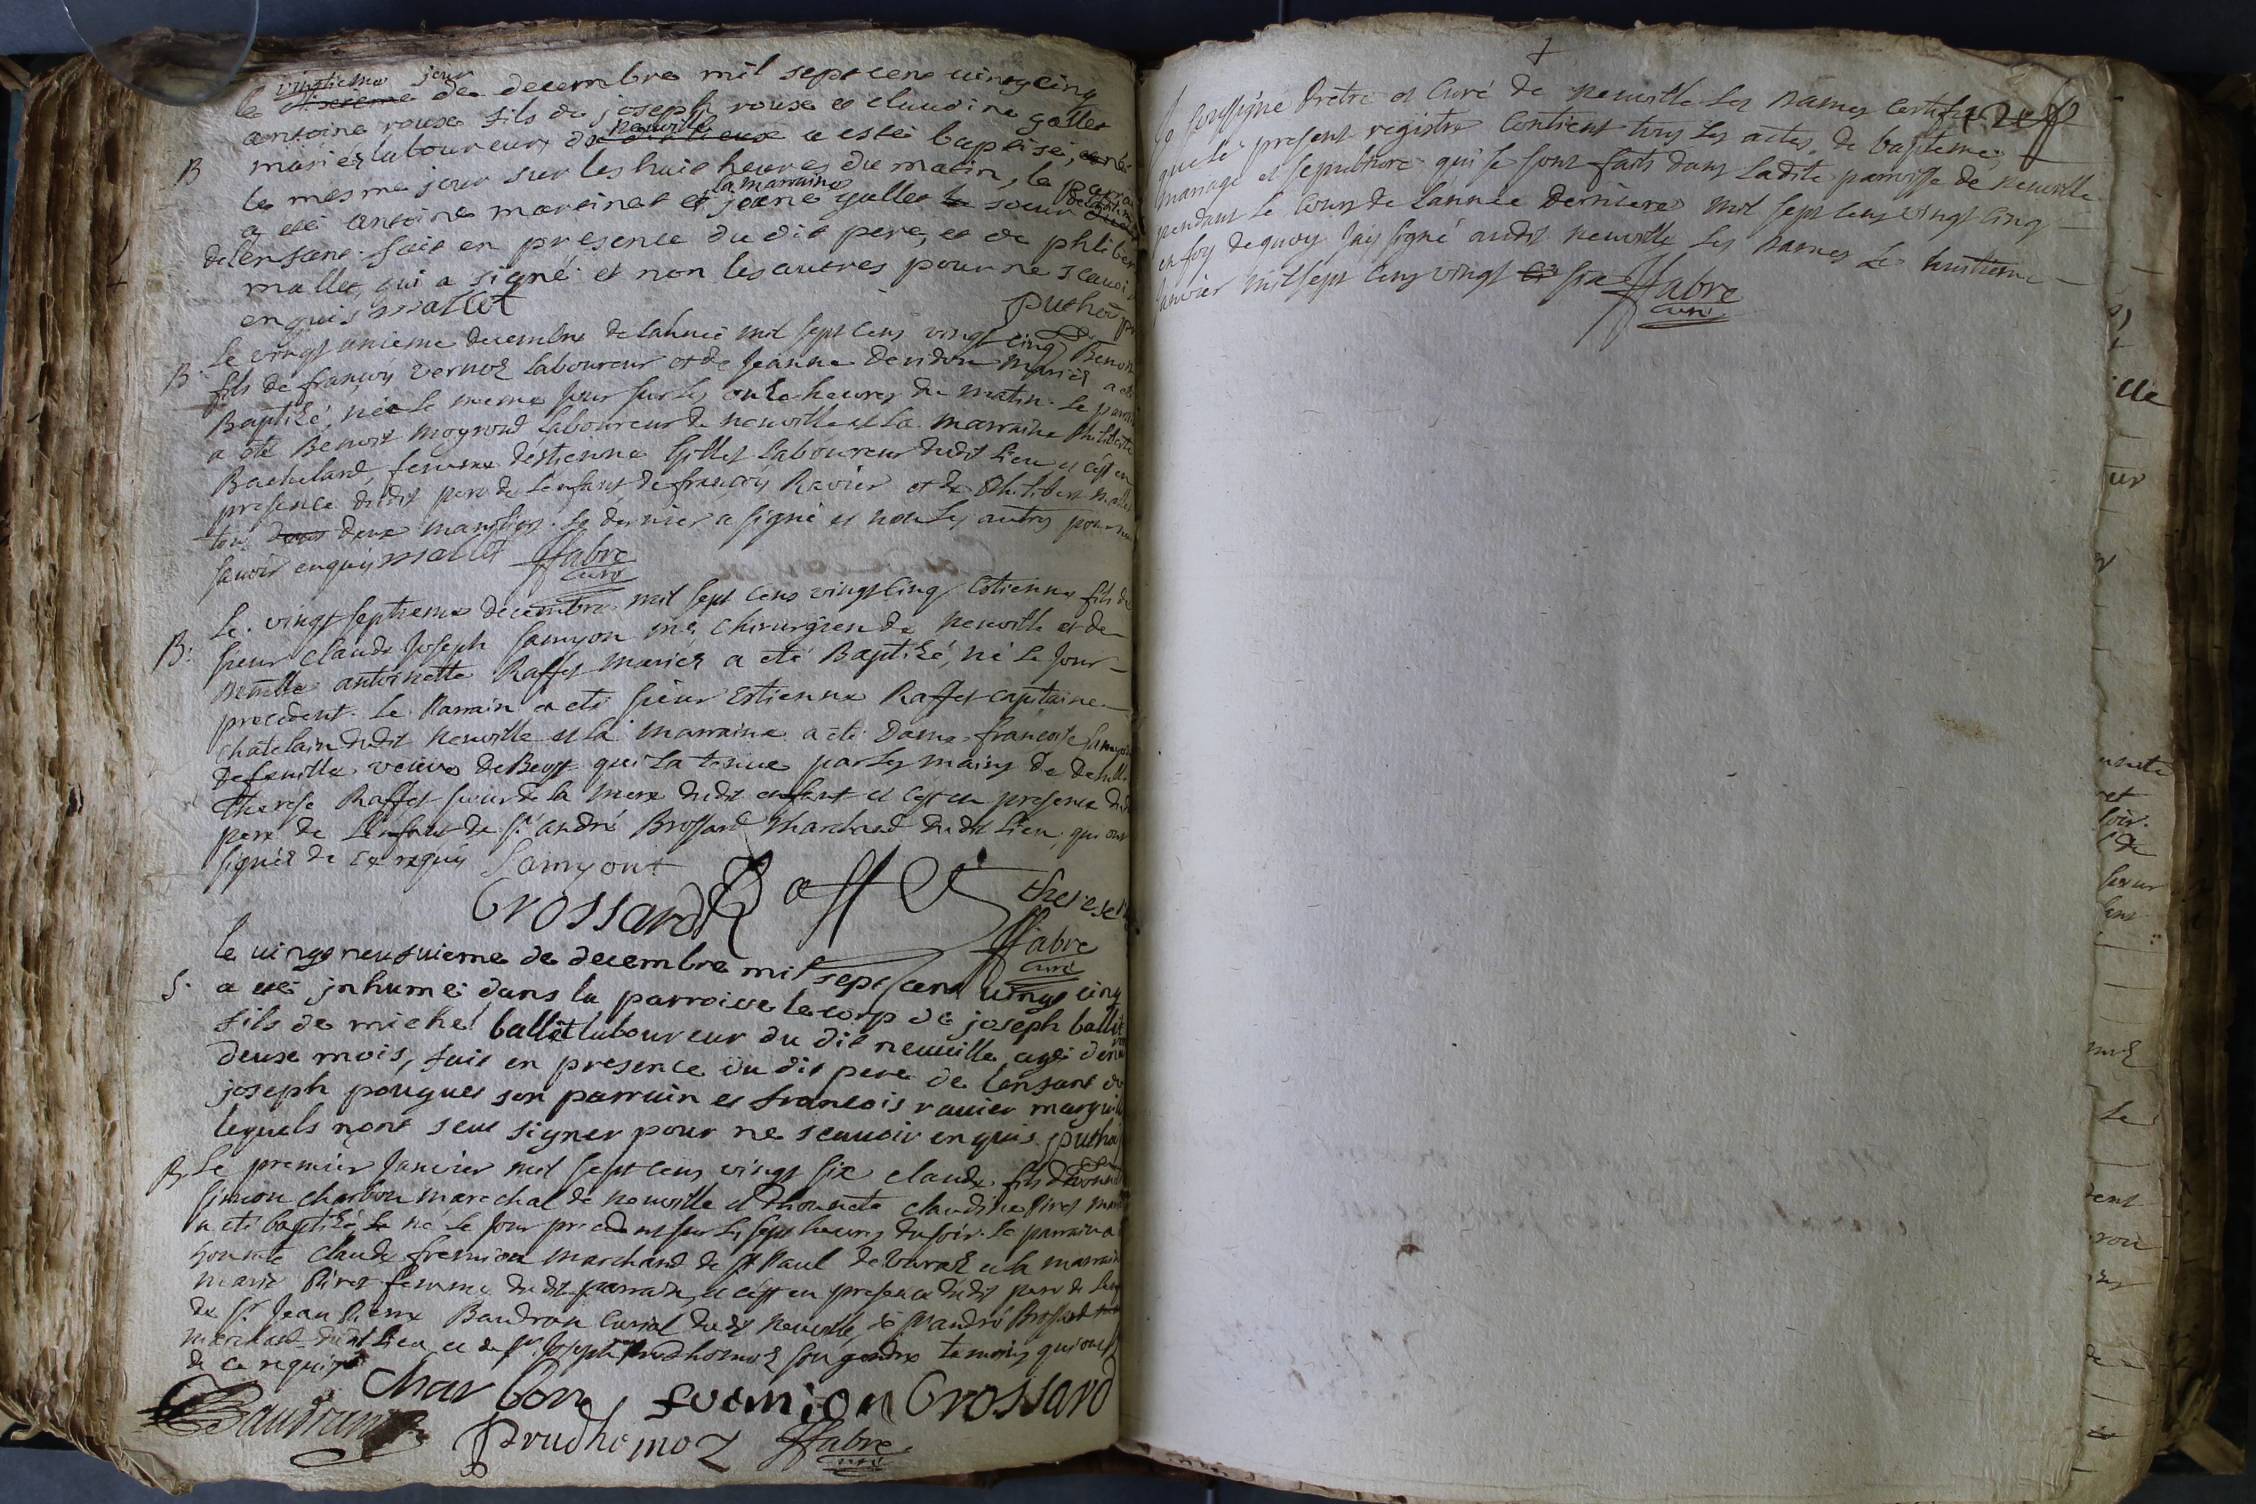 vingtieme jour
le dixieme de decembre mil sept cent vingt cinq
antoine roux fils de joseph roux et claudine gallet
neuville
B mariéz laboureurs de a esté baptisé, né
le mesme jour sur les huit heures du matin, le parrain
la marraine
a eté antoine martinet et jeane gallet soeur
de lenfant. fait en presence du dit pere, et de philibert
mallet, qui a signé et non les autres pour ne scavoir
enquis mallet puthod
B. Le vingt unieme decembre de l'année mil sept cens vingt cinq Benoit
fils de françois vernoz Laboureur et de Jeanne Devidon mariéz a eté
Baptizé, né le meme jour sur les onze heures du matin. Le parrain
a été Benoit moyroud Laboureur de neuville et la marraine Philiberte
Bachelard, femme d'estienne Gillet Laboureur dudit Lieu et c'est en
presence dudit pere de L'enfant, de françois Ravier et de Philibert mallet
tous deux marguilliers. Le dernier a signé et non les autres pour ne
savoir enquis mallet ffabre
curé
Le vingt septieme decembre mil sept cens vingt cinq Estienne fils de
B: sieur Claude Joseph Samyon me chirurgien de neuville et de
demlle antoinette Raffet mariez a eté Baptizé, né le jour
precedent. Le Parrain a eté sieur Estienne Raffet capitaine
chatelain dudit neuville et la marraine a eté Dame francoise Samyon
veuve qui la tenue par les mains de demlle
Therese Raffet soeur de la mere dudit enfant et c'est en presence dudit
pere de L'enfant de sr andré Brossard marchand dudit Lieu, qui ont
signéz de ce requis Samyont
Brossard Raffet therese
ffabre
curé
le vingt neufvieme de decembre mil sept cent vingt cinq
S. a eté inhumé dans la parroisse le corp de joseph ballet
fils de michel ballet laboureur du dit neuville agé denviron
deux mois, fait en presence du dit pere de lenfant de
joseph pouguet son parrain et francois ravier marguillier
lequels nont sceu signer pour ne scavoir enquis puthod
B. Le premier Janvier mil sept cens vingt six claude fils d'honnete
simon charbon marechal de neuville et d'honnete claudine Piret mariez
a eté baptizé né le jour precedent sur les sept heures du soir. le parrain a
honnete claude fremion marchand de st Paul de Varax et la marraine
marie Piret femme dudit parrain, et c'est en presence dudit pere de l'enfant
de sr Jean Pierre Baudran Curial dudit neuville, de sr andré Brossard
marchand dudit lieu et de sr Joseph Prudhomoz son gendre temoins qui ont signé
de ce requis
charbon fremion Brossard
Baudran Prudhomoz ffabre
curé
Je soussigné Pretre et Curé de neuville les Dames certifie
que le present registre contient tous les actes, de bapteme,
mariage et sepulture qui se sont faits dans ladite parroisse de neuville
pendant le cours de l'année derniere mil sept cens vingt cinq
en foy de quoy j'ay signé audit neuville les Dames le huitieme
janvier mil sept cens vingt six ffabre
curé